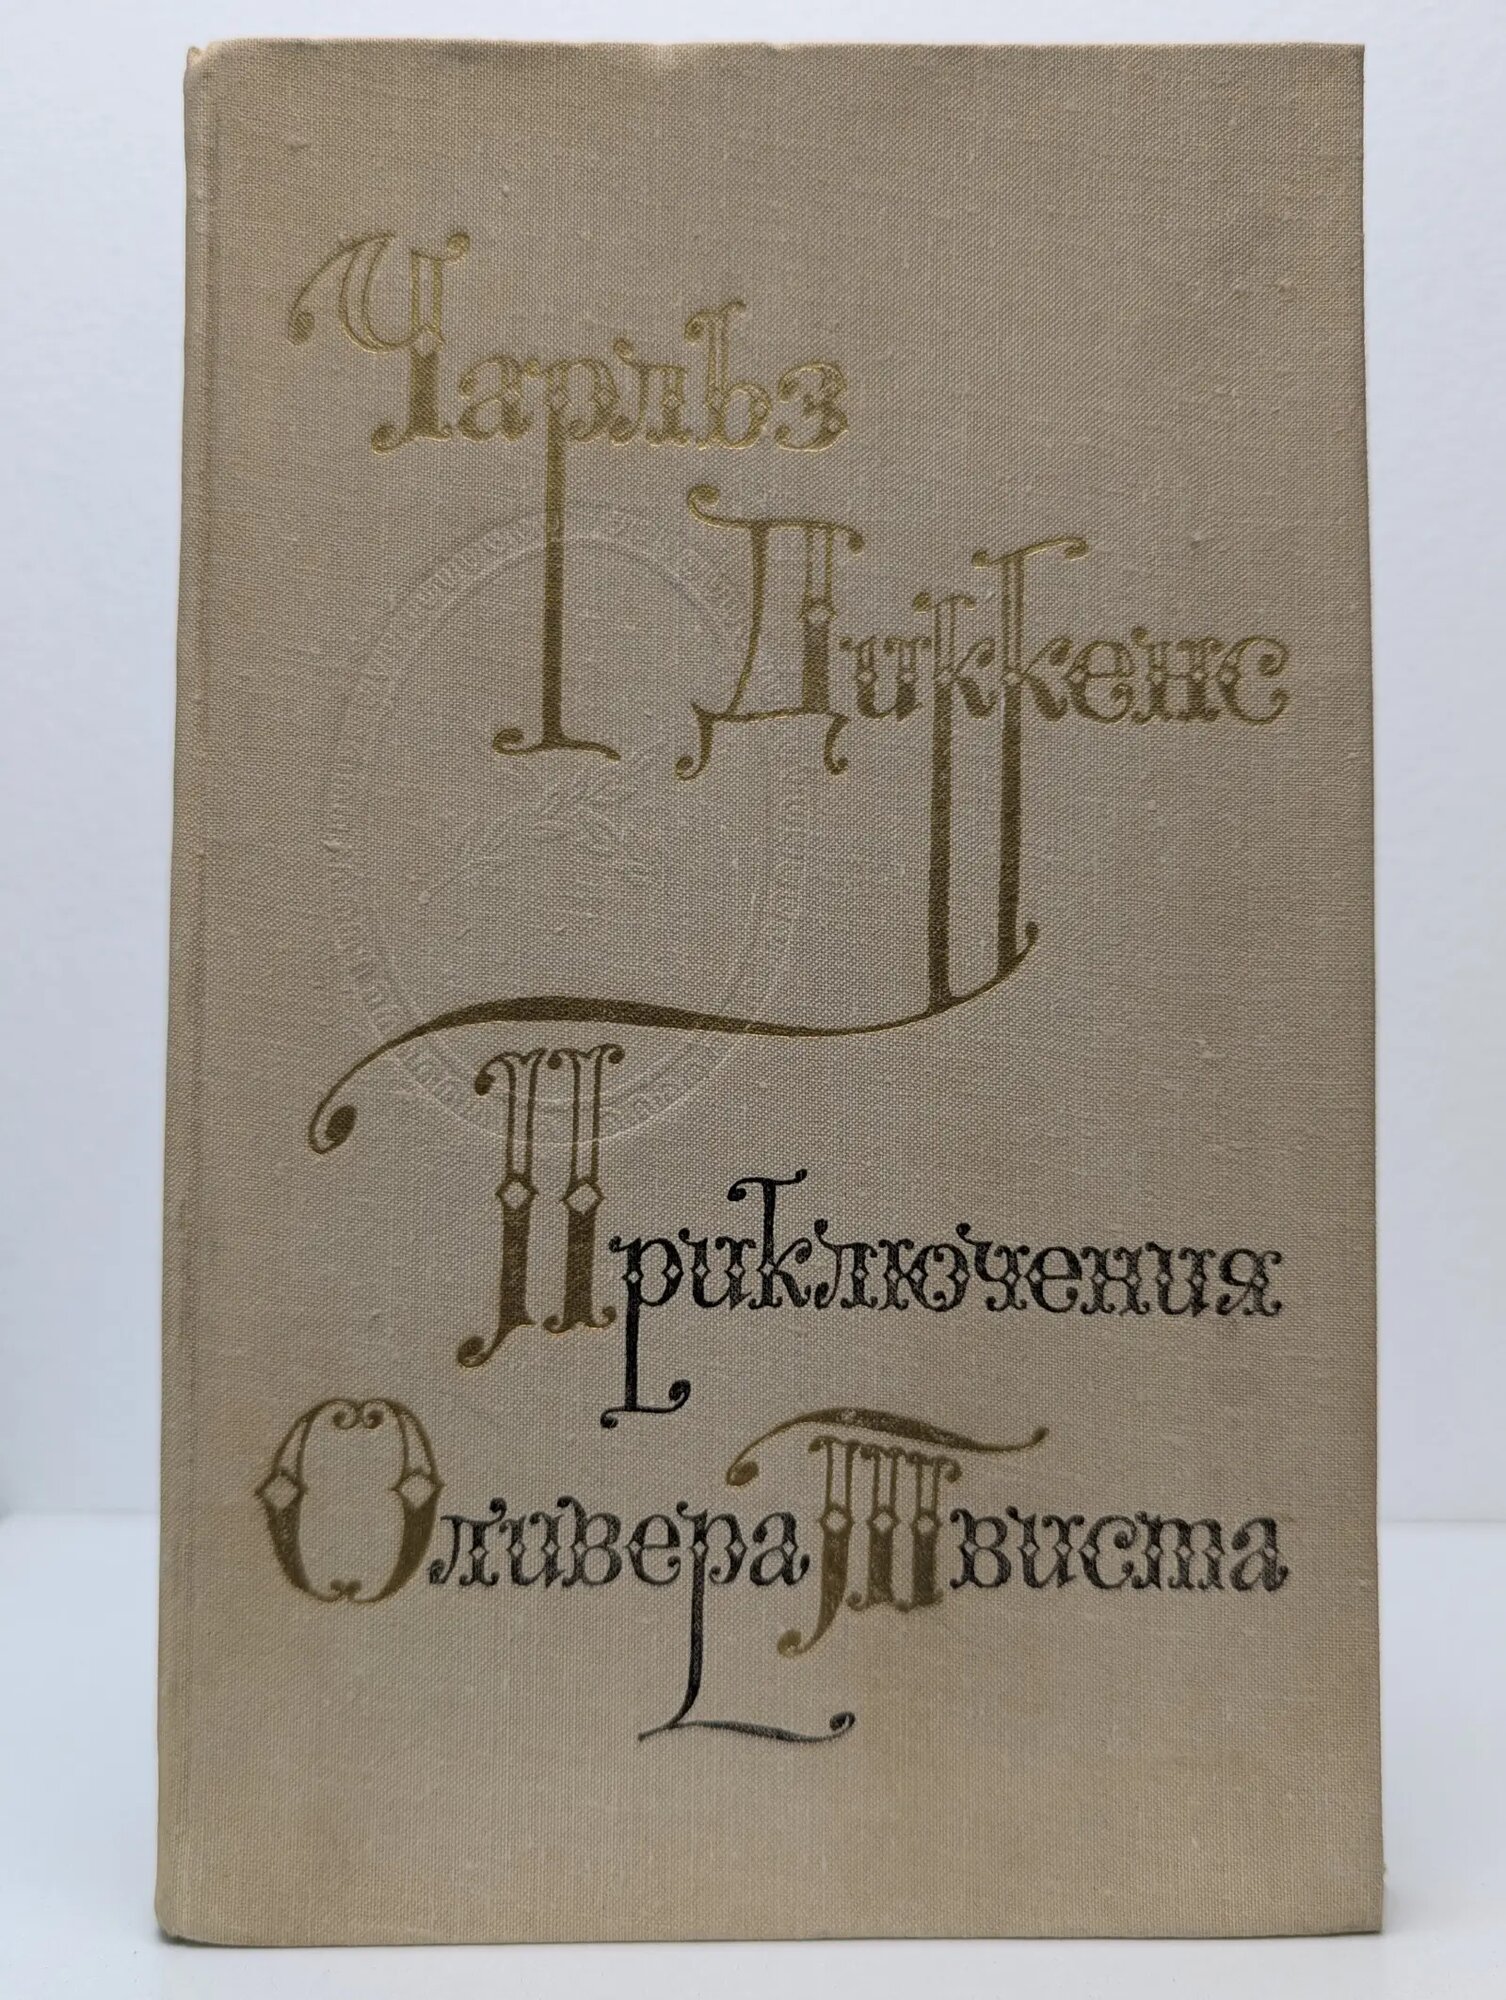 Чарльз
Диккенс
Приключения
Оливера Твиста